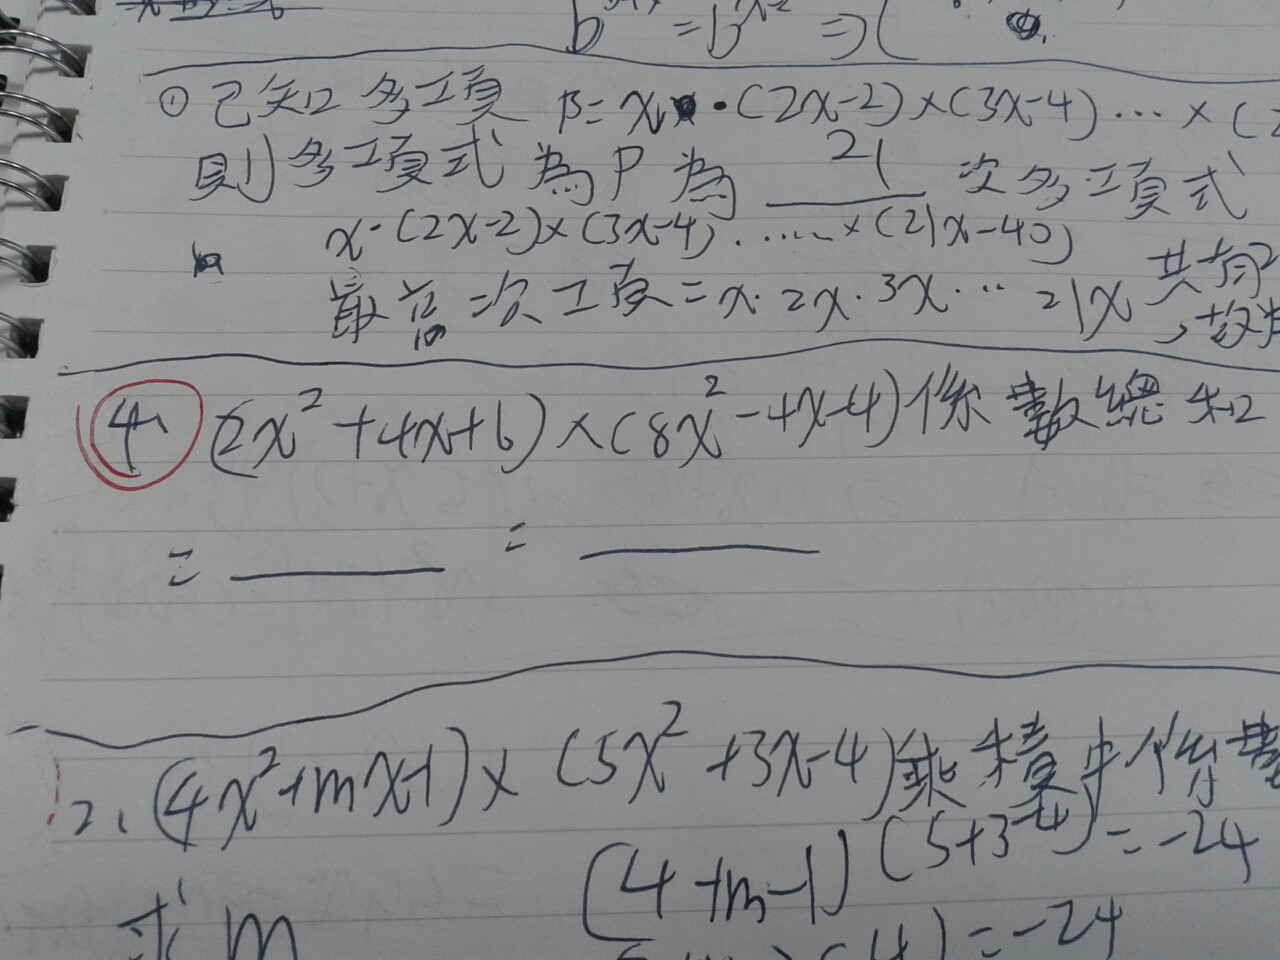 = b
⊙ 已知多項 P = x · (2x-2)×(3x-4)…×(2
則多項式為P為 21 次多項式
x·(2x-2)×(3x-4)……×(21x-40)
最高次項=x·2x·3x…21x 共有2
，故為
4、(2x²+4x+6)×(8x²-4x-4)係數總和
= ______ = ______
2、(4x²+mx-1)×(5x²+3x-4)乘積中係數
(4+m-1)(5+3-4)=-24
求 m
(4)=-24